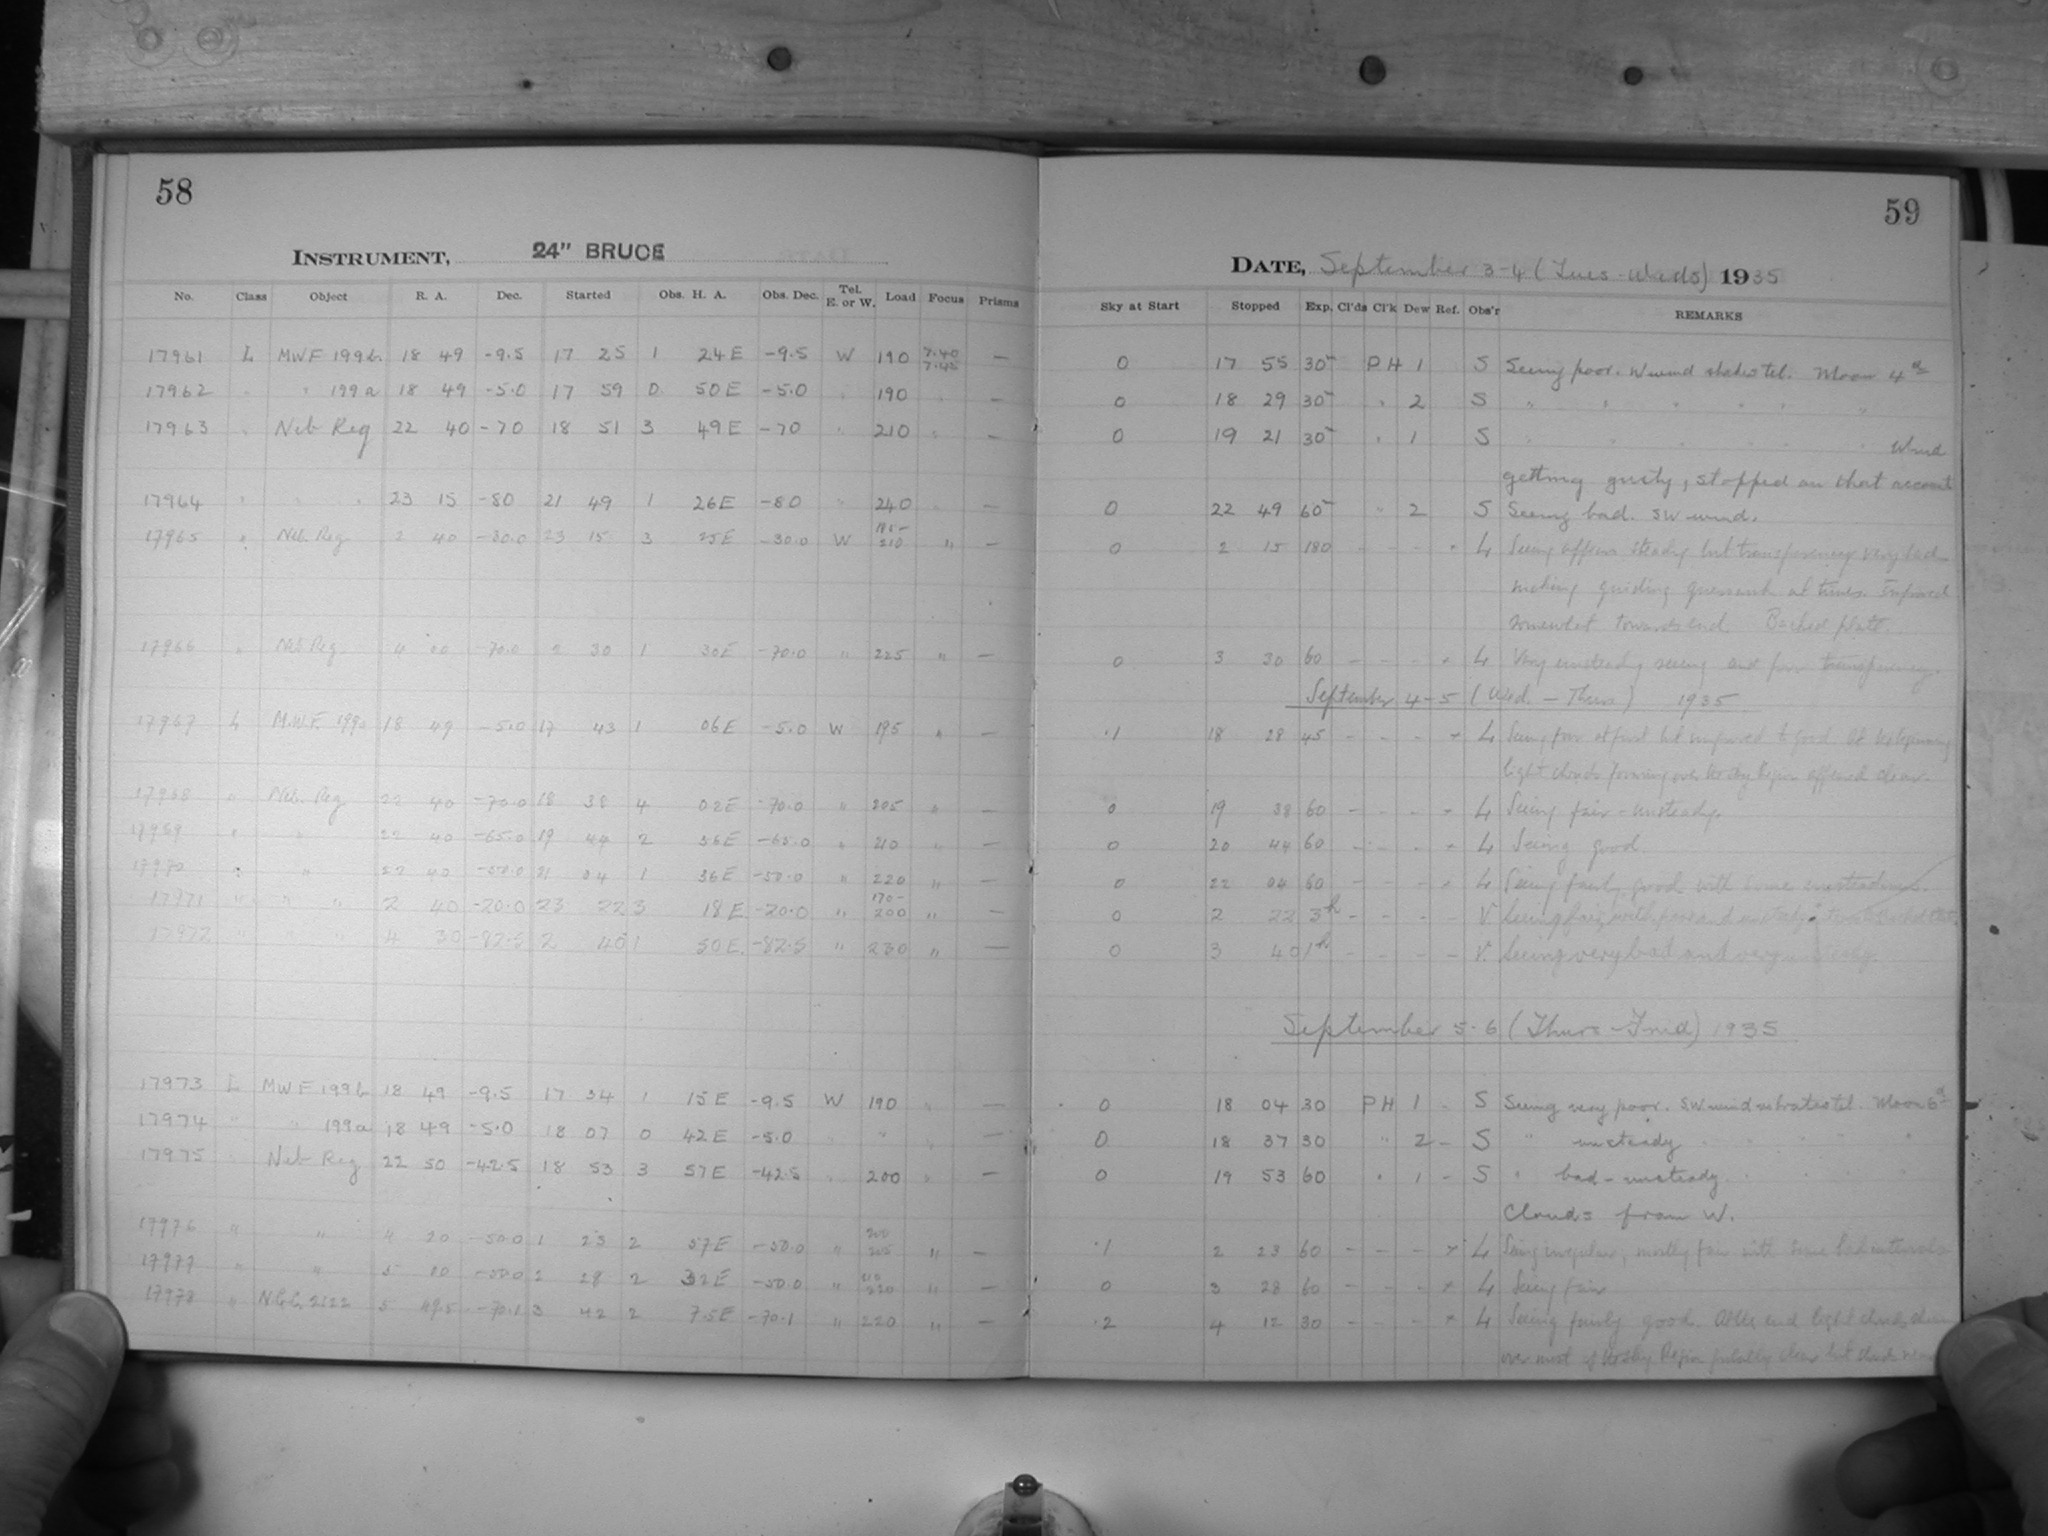 58
INSTRUMENT, 24" BRUCE
No. Class Object R. A. Dec. Started Obs. H. A. Obs. Dec. Tel. E. or W. Load Focus Prisms
17961 L MWF 199b 18 49 -9.5 17 25 1 24E -9.5 W 190 7.40 7.45 —
17962 " " 199a 18 49 -5.0 17 59 0 50E -5.0 " 190 " —
17963 " Neb Reg 22 40 -70 18 51 3 49E -70 " 210 " —
17964 " " " 23 15 -80 21 49 1 26E -80 " 240 " —
17965 " Neb. Reg 2 40 -30.0 23 15 3 25E -30.0 W 210 " —
17966 " Neb Reg. 4 00 -70.0 2 30 1 30E -70.0 " 225 " —
17967 L M.W.F. 199a 18 49 -5.0 17 43 1 06E -5.0 W 195 " —
17968 " Neb. Reg 22 40 -70.0 18 38 4 02E -70.0 " 205 " —
17969 " " 22 40 -65.0 19 44 2 56E -65.0 " 210 " —
17970 " " 22 40 -50.0 21 04 1 36E -50.0 " 220 " —
17971 " " " 2 40 -20.0 23 22 3 18E -20.0 " 170- 200 " —
17972 " " " 4 30 -82.5 2 40 1 50E -82.5 " 230 " —
17973 L MWF 199b 18 49 -9.5 17 34 1 15E -9.5 W 190 " —
17974 " " 199a 18 49 -5.0 18 07 0 42E -5.0 " " " —
17975 " Neb Reg 22 50 -42.5 18 53 3 57E -42.5 " 200 " —
17976 " " 4 20 -50.0 1 23 2 57E -50.0 " 200 205 " —
17977 " " 5 00 -50.0 2 28 2 32E -50.0 " 210 220 " —
17978 " N.G.C. 2122 5 49.5 -70.1 3 42 2 7.5E -70.1 " 220 " —
59
DATE, September 3-4 (Tues-Weds) 1935
Sky at Start Stopped Exp. Cl'ds Cl'k Dew Ref. Obs'r REMARKS
0 17 55 30 PH 1 S Seeing poor. W wind shakes tel. Moon 4
0 18 29 30 " 2 S " " " " " "
0 19 21 30 " 1 S " " " " " " Wind
getting gusty, stopped on that account
0 22 49 60 " 2 S Seeing bad. SW wind.
0 2 15 180 - - - L Seeing appears steady but transparency very bad
making guiding guesswork at times. Improved
somewhat towards end. Backed plate.
0 3 30 60 - - - L Very unsteady seeing and poor transparency.
September 4-5 (Wed. - Thurs) 1935
.1 18 28 45 - - - L Seeing poor at first but improved to good. At beginning
light clouds forming over
0 19 38 60 - - - L Seeing fair - unsteady.
0 20 44 60 - - - L Seeing good.
0 22 04 60 - - - L Seeing fairly good with some unsteadiness.
0 2 22 3h - - - - V. Seeing fair, with poor and unsteady
0 3 40 1h - - - - V. Seeing very bad and very unsteady
September 5-6 (Thurs-Frid) 1935
0 18 04 30 PH 1 - S Seeing very poor. SW wind vibrates tel. Moon 6
0 18 37 30 " 2 - S " unsteady " " "
0 19 53 60 " 1 - S " bad - unsteady
Clouds from W.
.1 2 23 60 - - - L Seeing irregular, mostly fair with some bad intervals
0 3 28 60 - - - L Seeing fair
.2 4 12 30 - - - L Seeing fairly good. At end light clouds
over most of